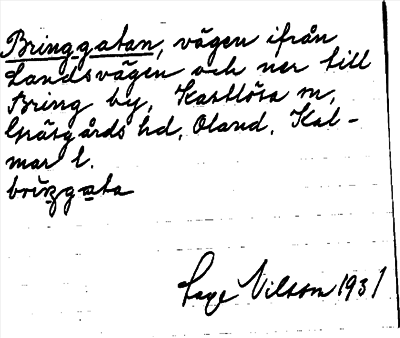 Bringgatan, vägen ifrån
Landsvägen och ner till
Bring by, Kastlösa sn,
Gräsgårds hd, Öland, Kal-
mar l.
briŋgata
Lage Nilsson 1931